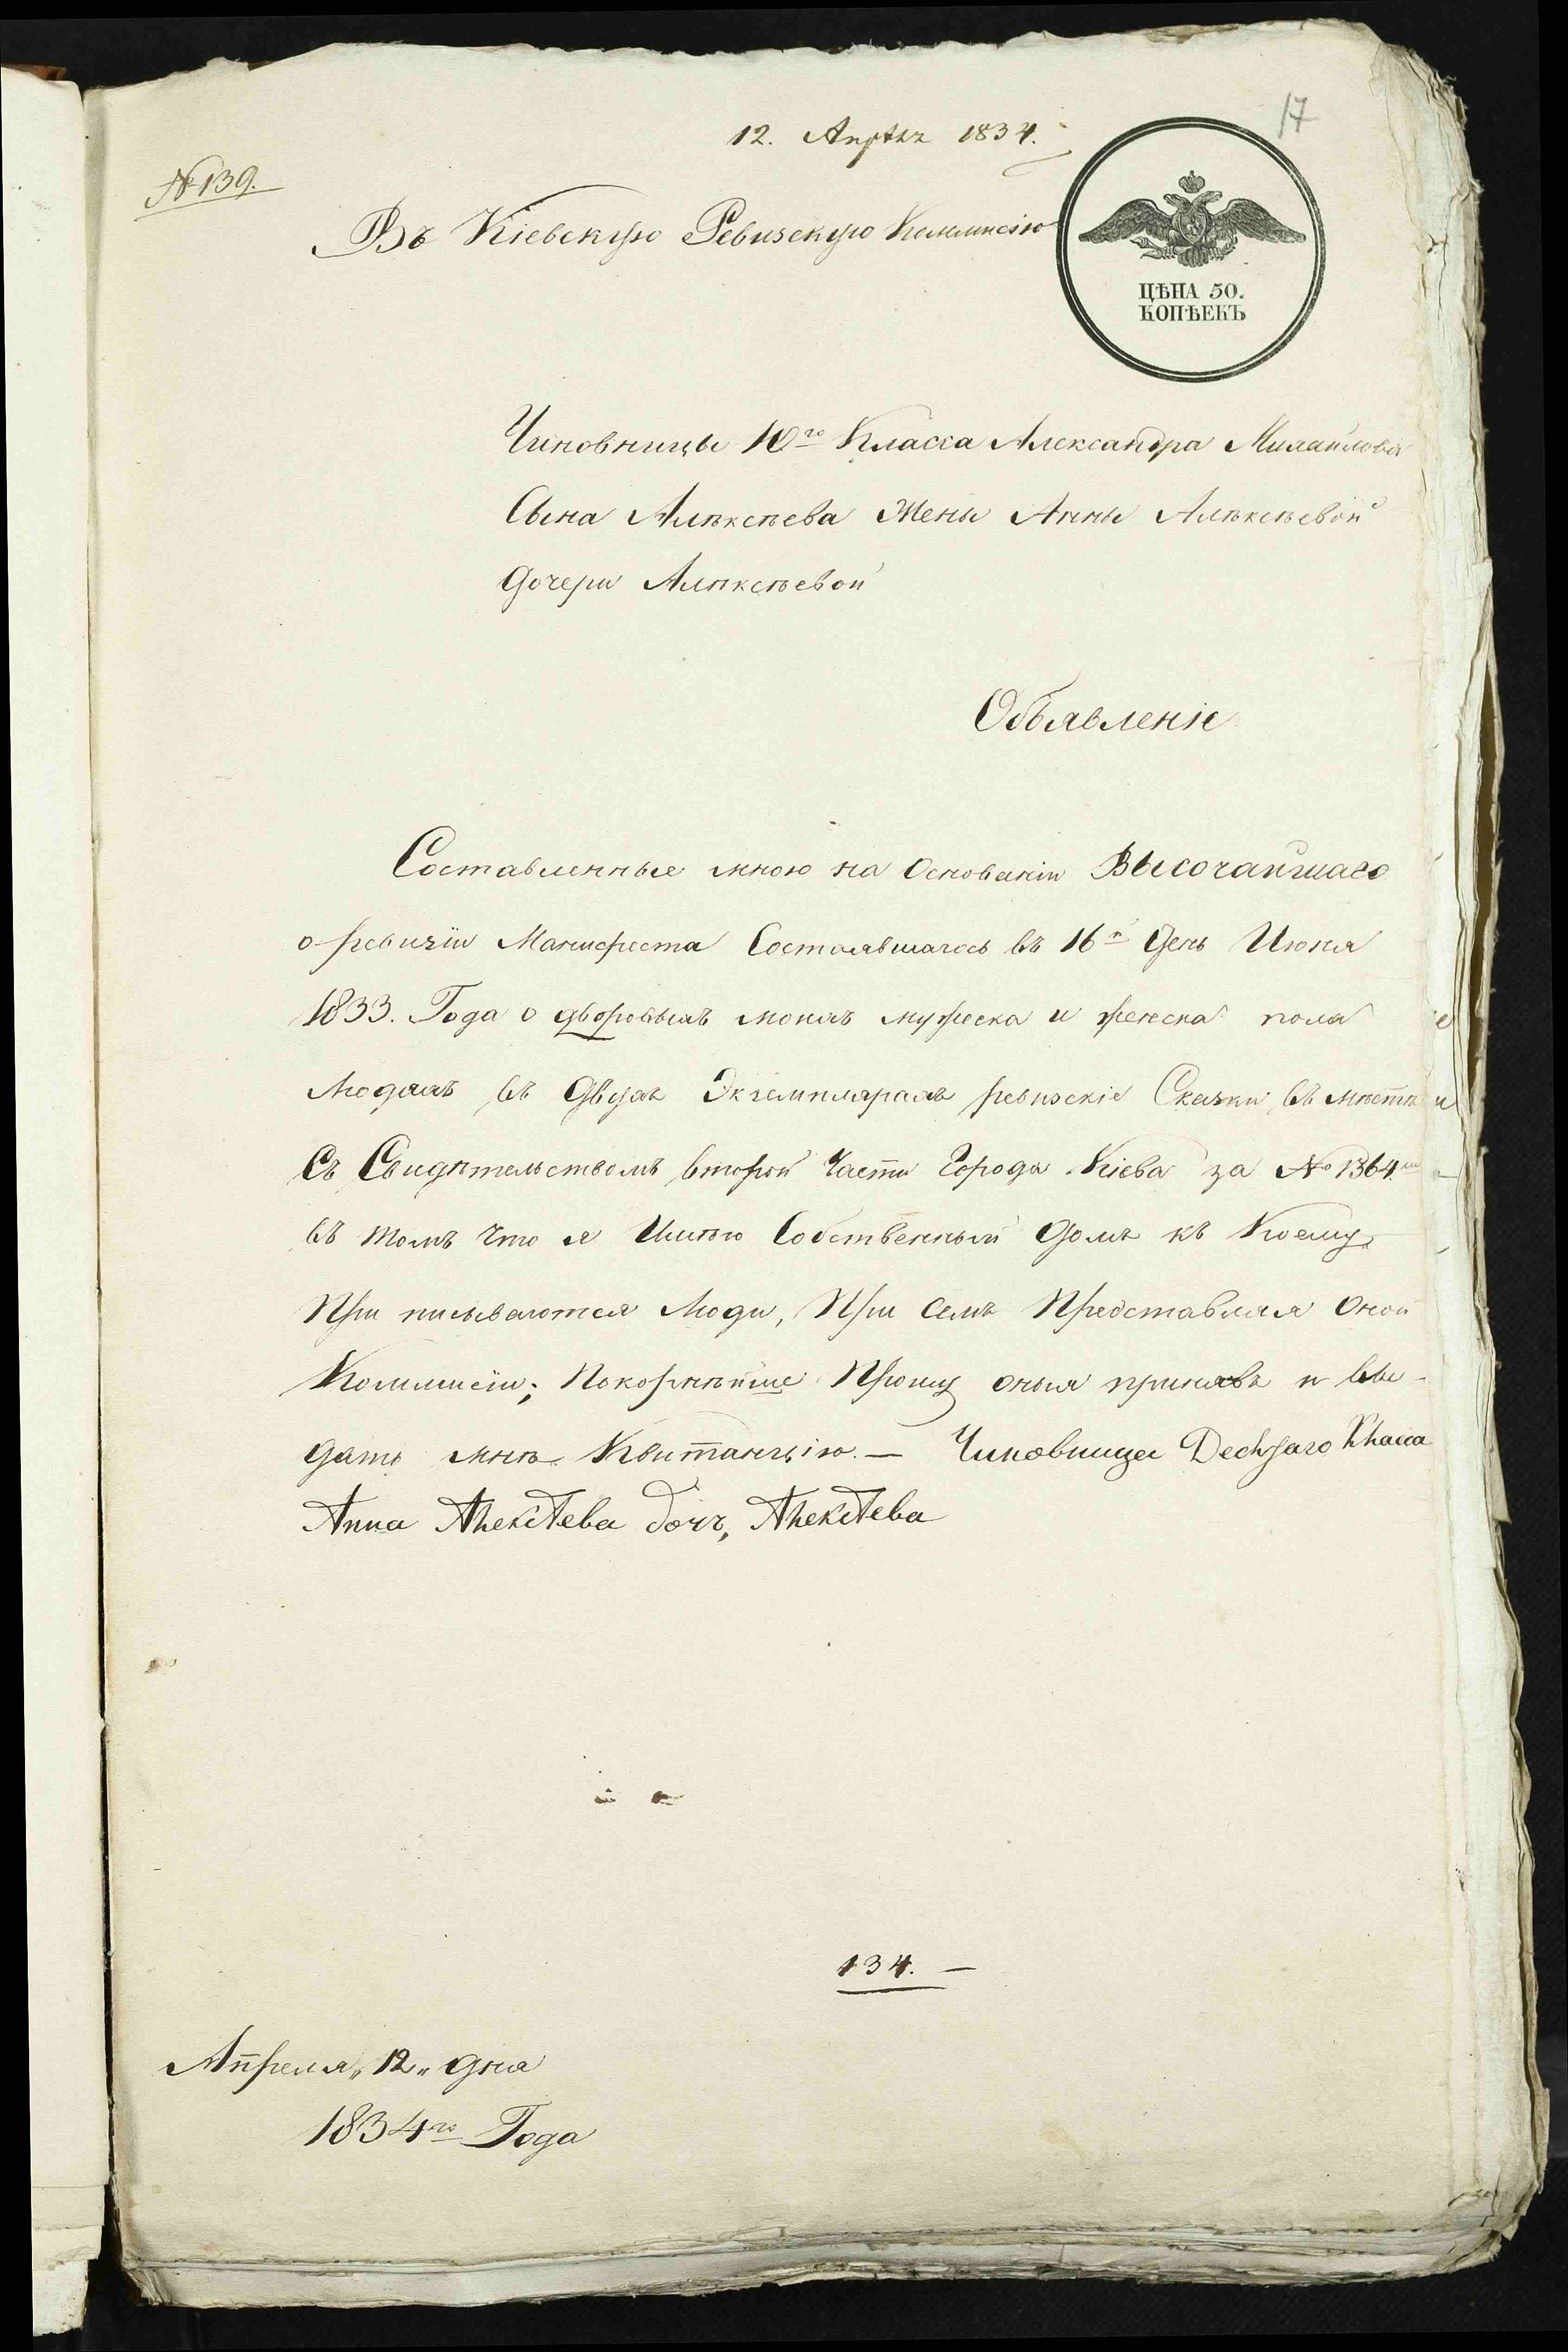 17
12. Апрѣлъ 1834.
№ 139.
Въ Кіевскую Ревизскую Коммисію
ЦѢНА 50.
КОПѢЕКЪ
Чиновницы 10го Класса Александра Михайлова
Сына Алѣксѣева Жены Анны Алѣксѣевой
Дочери Алѣксѣевой
Объявленіе
Составленные мною на Основаніи Высочайшаго
о ревизіи Манифеста Состоявшагось въ 16й День Июня
1833. Года о дворовыхъ моихъ мужеска и женска пола
Людяхъ въ Двухъ Экземплярахъ ревизскіе Сказки въ мѣстѣ
Съ Свидѣтельствомъ второй Части Города Кіева за № 1364м
въ томъ Что я Имѣю Собственный Домъ къ Коему
При писываются Люди, При Семъ Представляя Оной
Коммисіи; Покорнѣйше Прошу оныя принявъ и вы-
дать мнѣ Квитанцію. — Чиновница Десятаго Класса
Анна Алексѣева дочъ, Алексѣева
134. —
Апреля „12„ дня
1834го Года